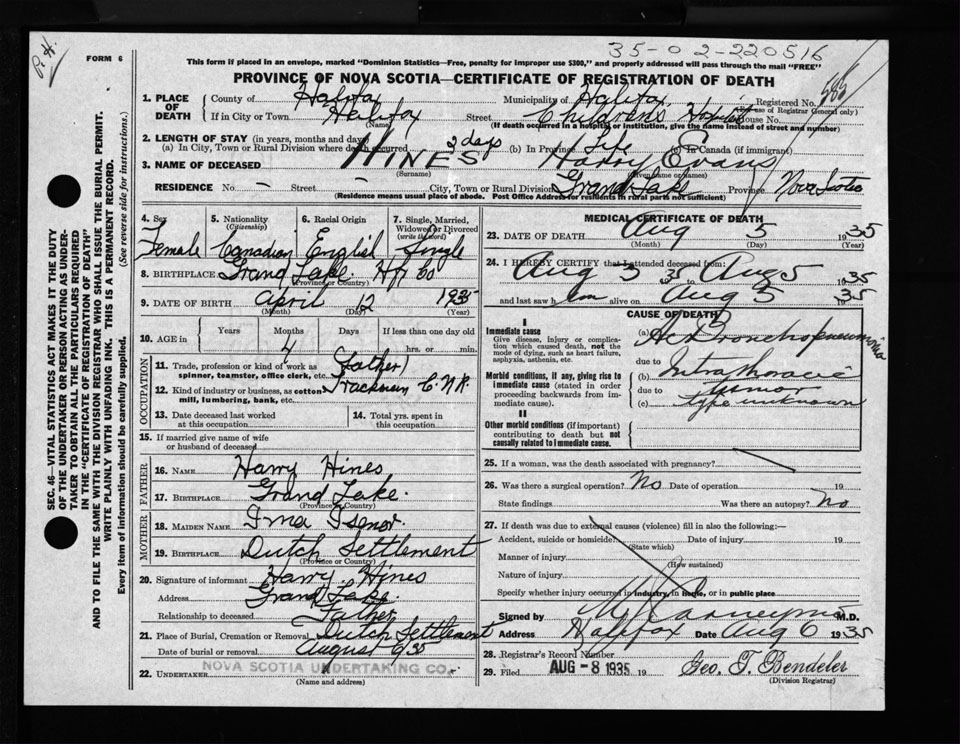 P. H.
35-02-220516
FORM 6
This form if placed in an envelope, marked "Dominion Statistics—Free, penalty for improper use $300," and properly addressed will pass through the mail "FREE"
PROVINCE OF NOVA SCOTIA—CERTIFICATE OF REGISTRATION OF DEATH
1. PLACE OF DEATH
County of Halifax Municipality of Halifax Registered No.
(For use of Registrar General only)
If in City or Town Halifax Street Childrens Hospital House No.
(Name) (If death occurred in a hospital or institution, give the name instead of street and number)
2. LENGTH OF STAY (in years, months and days)
(a) In City, Town or Rural Division where death occurred 3 days (b) In Province Life (c) In Canada (if immigrant)
3. NAME OF DECEASED HINES Harry Evans
(Surname) (Given name or names)
RESIDENCE No. – Street – City, Town or Rural Division Grand Lake Province Nova Scotia
(Residence means usual place of abode. Post Office Address for residents in rural parts not sufficient)
4. Sex Female
5. Nationality (Citizenship) Canadian
6. Racial Origin English
7. Single, Married, Widowed or Divorced (write the word) Single
8. BIRTHPLACE Grand Lake. Hfx Co
(Province or Country)
9. DATE OF BIRTH April 12 1935
(Month) (Day) (Year)
10. AGE in Years Months 4 Days If less than one day old hrs. or min.
OCCUPATION
11. Trade, profession or kind of work as spinner, teamster, office clerk, etc. (father)
12. Kind of industry or business, as cotton mill, lumbering, bank, etc. Trackman C.N.R.
13. Date deceased last worked at this occupation
14. Total yrs. spent in this occupation
15. If married give name of wife or husband of deceased
FATHER
16. NAME Harry Hines
17. BIRTHPLACE Grand Lake.
(Province or Country)
MOTHER
18. MAIDEN NAME Irma Isenor.
19. BIRTHPLACE Dutch Settlement
(Province or Country)
20. Signature of informant Harry Hines
Address Grand Lake.
Relationship to deceased Father
21. Place of Burial, Cremation or Removal Dutch Settlement
Date of burial or removal August 6/35
22. UNDERTAKER NOVA SCOTIA UNDERTAKING CO.
(Name and address)
MEDICAL CERTIFICATE OF DEATH
23. DATE OF DEATH Aug 5 1935
(Month) (Day) (Year)
24. I HEREBY CERTIFY that I attended deceased from:
Aug 3 35 to Aug 5 1935
and last saw h im alive on Aug 5 1935
CAUSE OF DEATH
I
Immediate cause
Give disease, injury or complication which caused death, not the mode of dying, such as heart failure, asphyxia, asthenia, etc.
(a) Ac Bronchopneumonia
due to
Morbid conditions, if any, giving rise to immediate cause (stated in order proceeding backwards from immediate cause).
(b) Intrathoracic
due to tumor
(c) type unknown
II
Other morbid conditions (if important) contributing to death but not causally related to immediate cause.
25. If a woman, was the death associated with pregnancy?
26. Was there a surgical operation? No Date of operation 19
State findings Was there an autopsy? No
27. If death was due to external causes (violence) fill in also the following:—
Accident, suicide or homicide? Date of injury 19
(State which)
Manner of injury
(How sustained)
Nature of injury
Specify whether injury occurred in industry, in home, or in public place
Signed by M.D.
Address Halifax Date Aug 6 1935
28. Registrar's Record Number
29. Filed AUG -8 1935 19 Geo. T. Bendeler
(Division Registrar)
SEC. 46—VITAL STATISTICS ACT MAKES IT THE DUTY
OF THE UNDERTAKER OR PERSON ACTING AS UNDER-
TAKER TO OBTAIN ALL THE PARTICULARS REQUIRED
IN THE "CERTIFICATE OF REGISTRATION OF DEATH"
AND TO FILE THE SAME WITH THE DIVISION REGISTRAR WHO SHALL ISSUE THE BURIAL PERMIT.
WRITE PLAINLY WITH UNFADING INK. THIS IS A PERMANENT RECORD.
Every item of information should be carefully supplied. (See reverse side for instructions.)